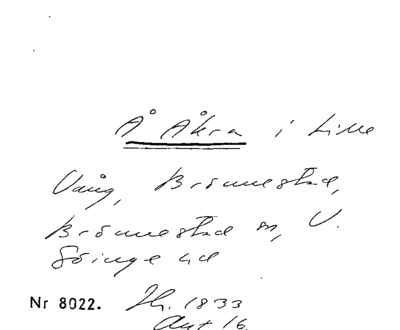 Å Åkra i Lille
Vång, Brönnestad,
Brönnestad sn, V.
Göinge hd
Nr 8022. Th. 1833
Aut 16.